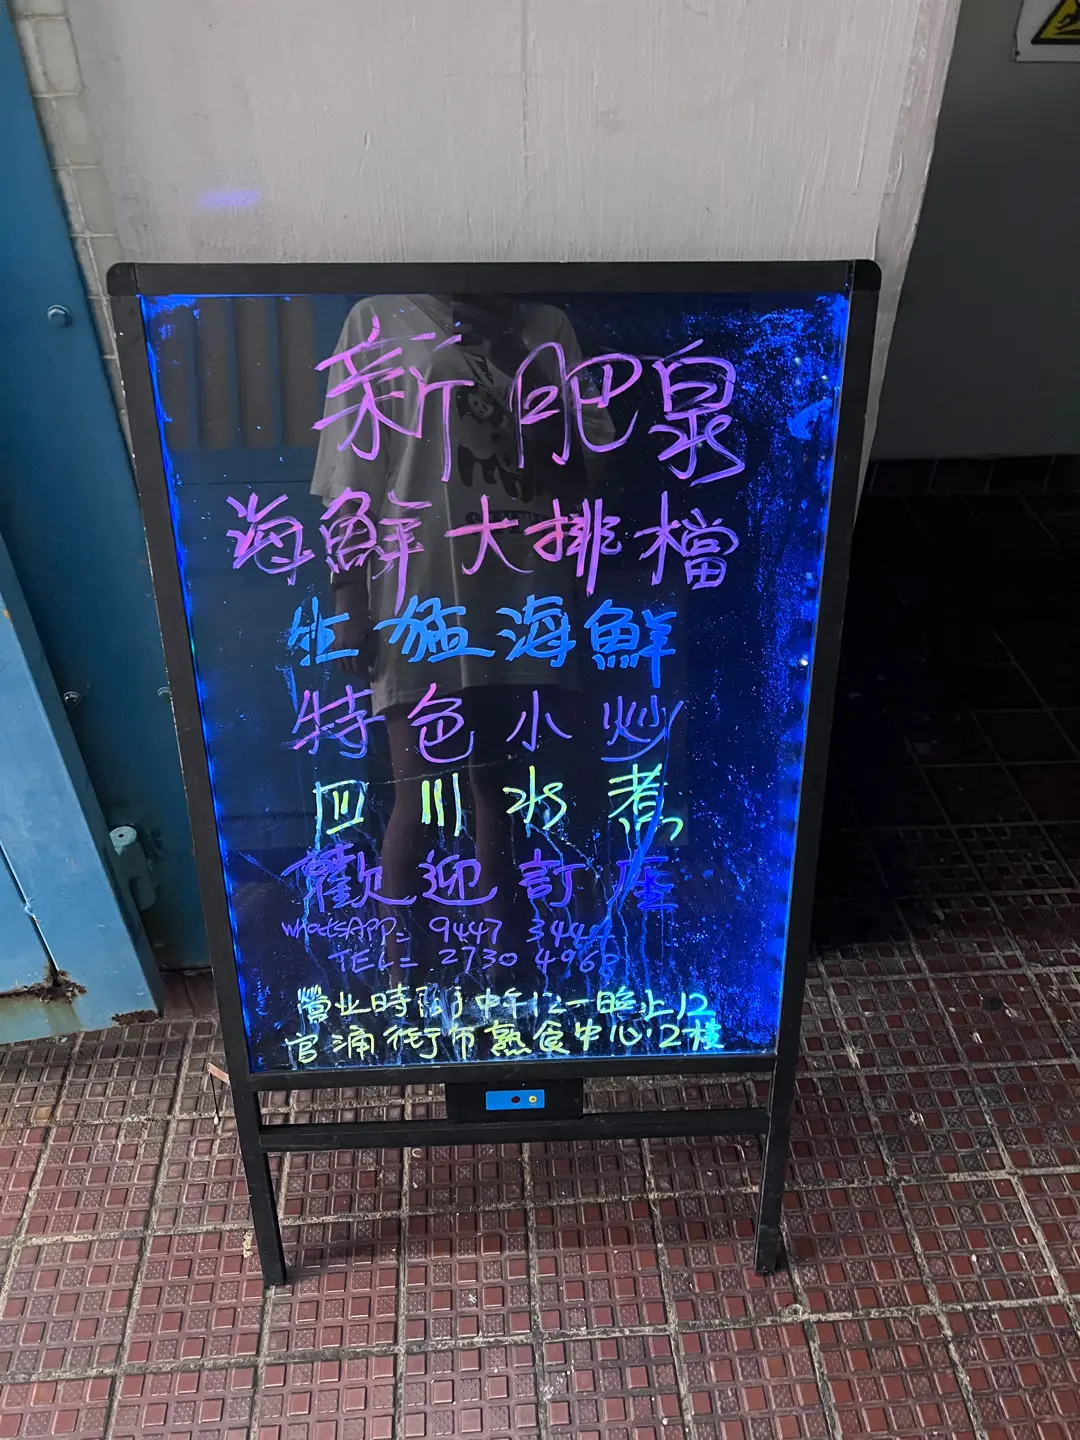 新肥泉
海鮮大排檔
生猛海鮮
特色小炒
四川水煮
歡迎訂座
WhatsAPP= 9447 3444
TEL= 2730 4968
營业時间中午12一晚上12
官涌街市熟食中心2樓